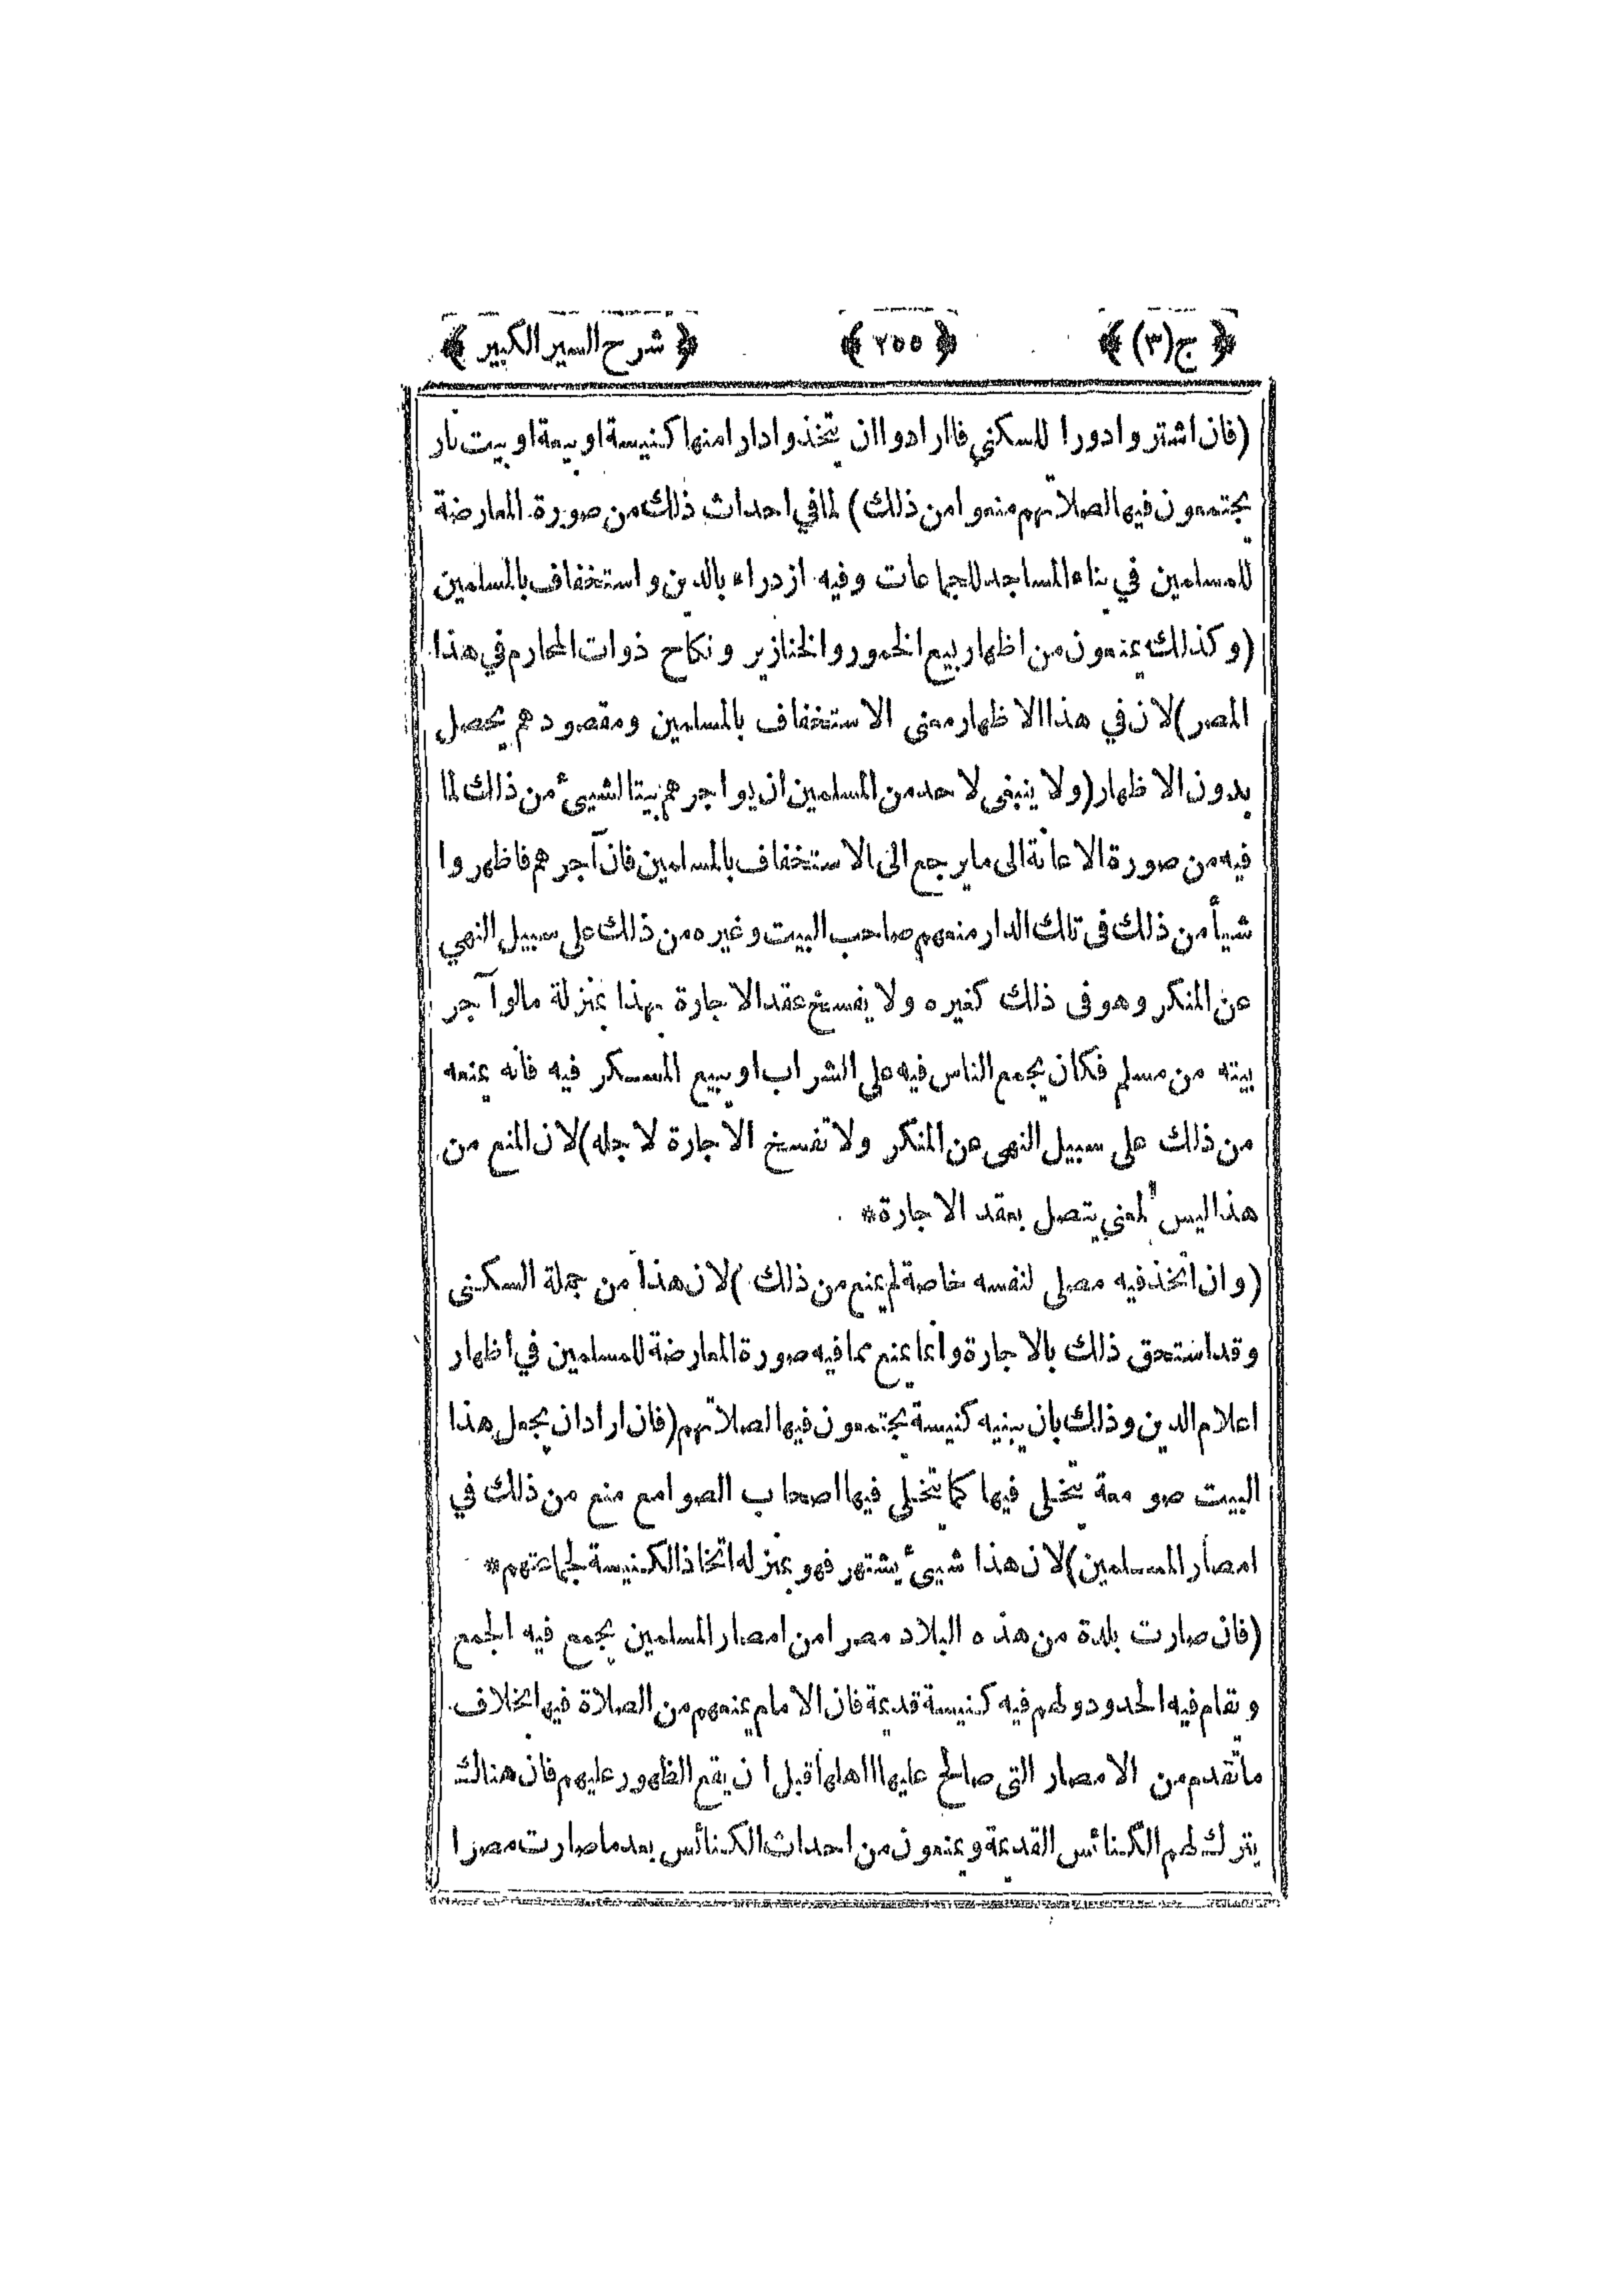 ﴿ ج(٣) ﴾ ﴿ ٢٥٥ ﴾ ﴿ شرح السير الكبير ﴾
(فان اشتروا دورا للسكنى فاارادوا ان يتخذوا دارا منها كنيسة او بيعة او بيت نار
يجتمعون فيها لصلاتهم منعوا من ذلك) لما في احداث ذلك من صورة المعارضة
للمسلمين في بناء المساجد للجماعات وفيه ازدراء بالدين واستخفاف بالمسلمين
(وكذلك يمنعون من اظهار بيع الخمور والخنازير ونكاح ذوات المحارم في هذا
المصر) لان في هذا الاظهار معنى الاستخفاف بالمسلمين ومقصودهم يحصل
بدون الاظهار (ولا ينبغى لاحد من المسلمين ان يواجرهم بيتا لشيئ من ذلك لما
فيه من صورة الاعانة الى ما يرجع الى الاستخفاف بالمسلمين فان آجرهم فاظهروا
شيأ من ذلك فى تلك الدار منعهم صاحب البيت وغيره من ذلك على سبيل النهي
عن المنكر وهو فى ذلك كغيره ولا يفسخ عقد الاجارة بهذا بمنزلة مالو آجر
بيته من مسلم فكان يجمع الناس فيه على الشراب او يبيع المسكر فيه فانه يمنعه
من ذلك على سبيل النهى عن المنكر ولا تفسخ الاجارة لاجله) لان المنع من
هذا ليس لمعنى يتصل بعقد الاجارة*
(وان اتخذ فيه مصلى لنفسه خاصة لم يمنع من ذلك) لان هذا من جملة السكنى
وقد استحق ذلك بالاجارة وانما يمنع مما فيه صورة المعارضة للمسلمين في اظهار
اعلام الدين وذلك بان يبنيه كنيسة يجتمعون فيها لصلاتهم (فان اراد ان يجعل هذا
البيت صومعة يتخلى فيها كما يتخلى فيها اصحاب الصوامع منع من ذلك في
امصار المسلمين) لان هذا شيئ يشتهر فهو بمنزله اتخاذ الكنيسة لجماعتهم*
(فان صارت بلدة من هذه البلاد مصرا من امصار المسلمين يجمع فيه الجمع
وتقام فيه الحدود ولهم فيه كنيسة قديمة فان الامام يمنعهم من الصلاة فيها بخلاف
ماتقدم من الامصار التى صالح عليها اهلها قبل ان يقع الظهور عليهم فان هنالك
يترك لهم الكنائس القديمة ويمنعون من احداث الكنائس بعد ما صارت مصرا